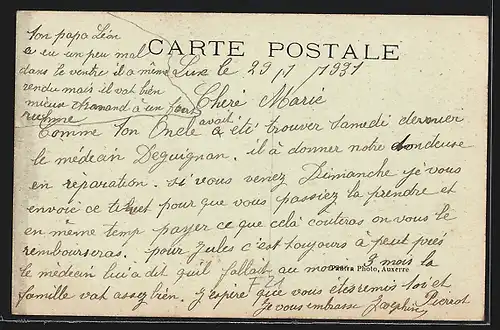 Ton papa Léon
a eu un peu mal
dans le ventre il a même
rendu mais il vat bien
mieux Armand à un fort
rhume
CARTE POSTALE
Lux le 29/1/1931
Cheré Marie
avait
Comme ton Oncle a été trouver Samedi dernier
le médecin Deguignan. il à donner notre tondeuse
en réparation. si vous venez Dimanche je vous
envoie ce ticket pour que vous passiez la prendre et
en même temp payer ce que celà couteras on vous le
rembourseras. pour Jules c'est toujours à peut près
le médecin lui a dit qu'il fallait au moins 3 mois la
Photo, Auxerre
famille vat assez bien. J'espère que vous êtes remis toi et
Pierrot
Je vous embrasse Joséphine